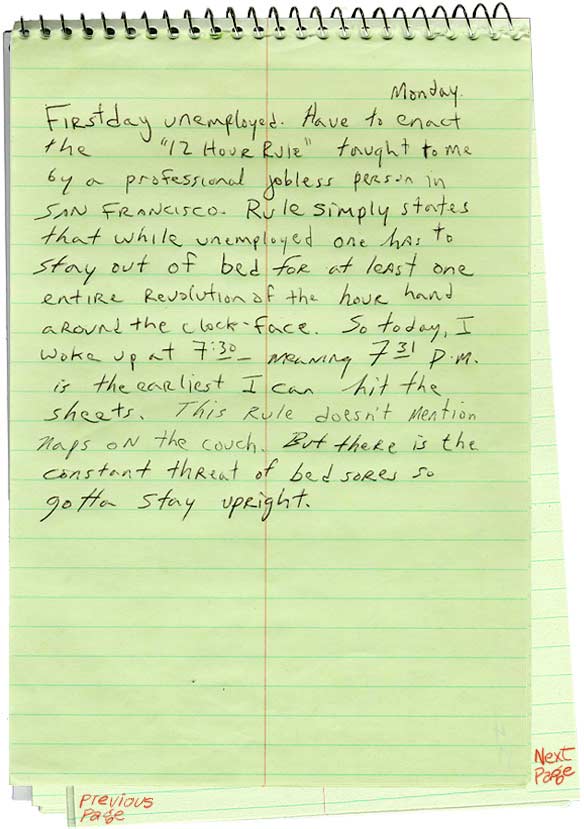 Monday.
First day unemployed. Have to enact
the "12 Hour Rule" taught to me
by a professional jobless person in
SAN FRANCISCO. Rule simply states
that while unemployed one has to
stay out of bed for at least one
entire Revolution of the hour hand
around the clock-face. So today, I
woke up at 7:30 meaning 7 31 P.M.
is the earliest I can hit the
sheets. This Rule doesn't mention
naps on the couch. But there is the
constant threat of bed sores so
gotta stay upright.
Next
Page
Previous
Page